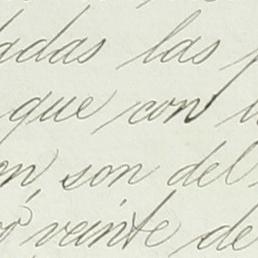 adas las
que con
on, son del
veinte de